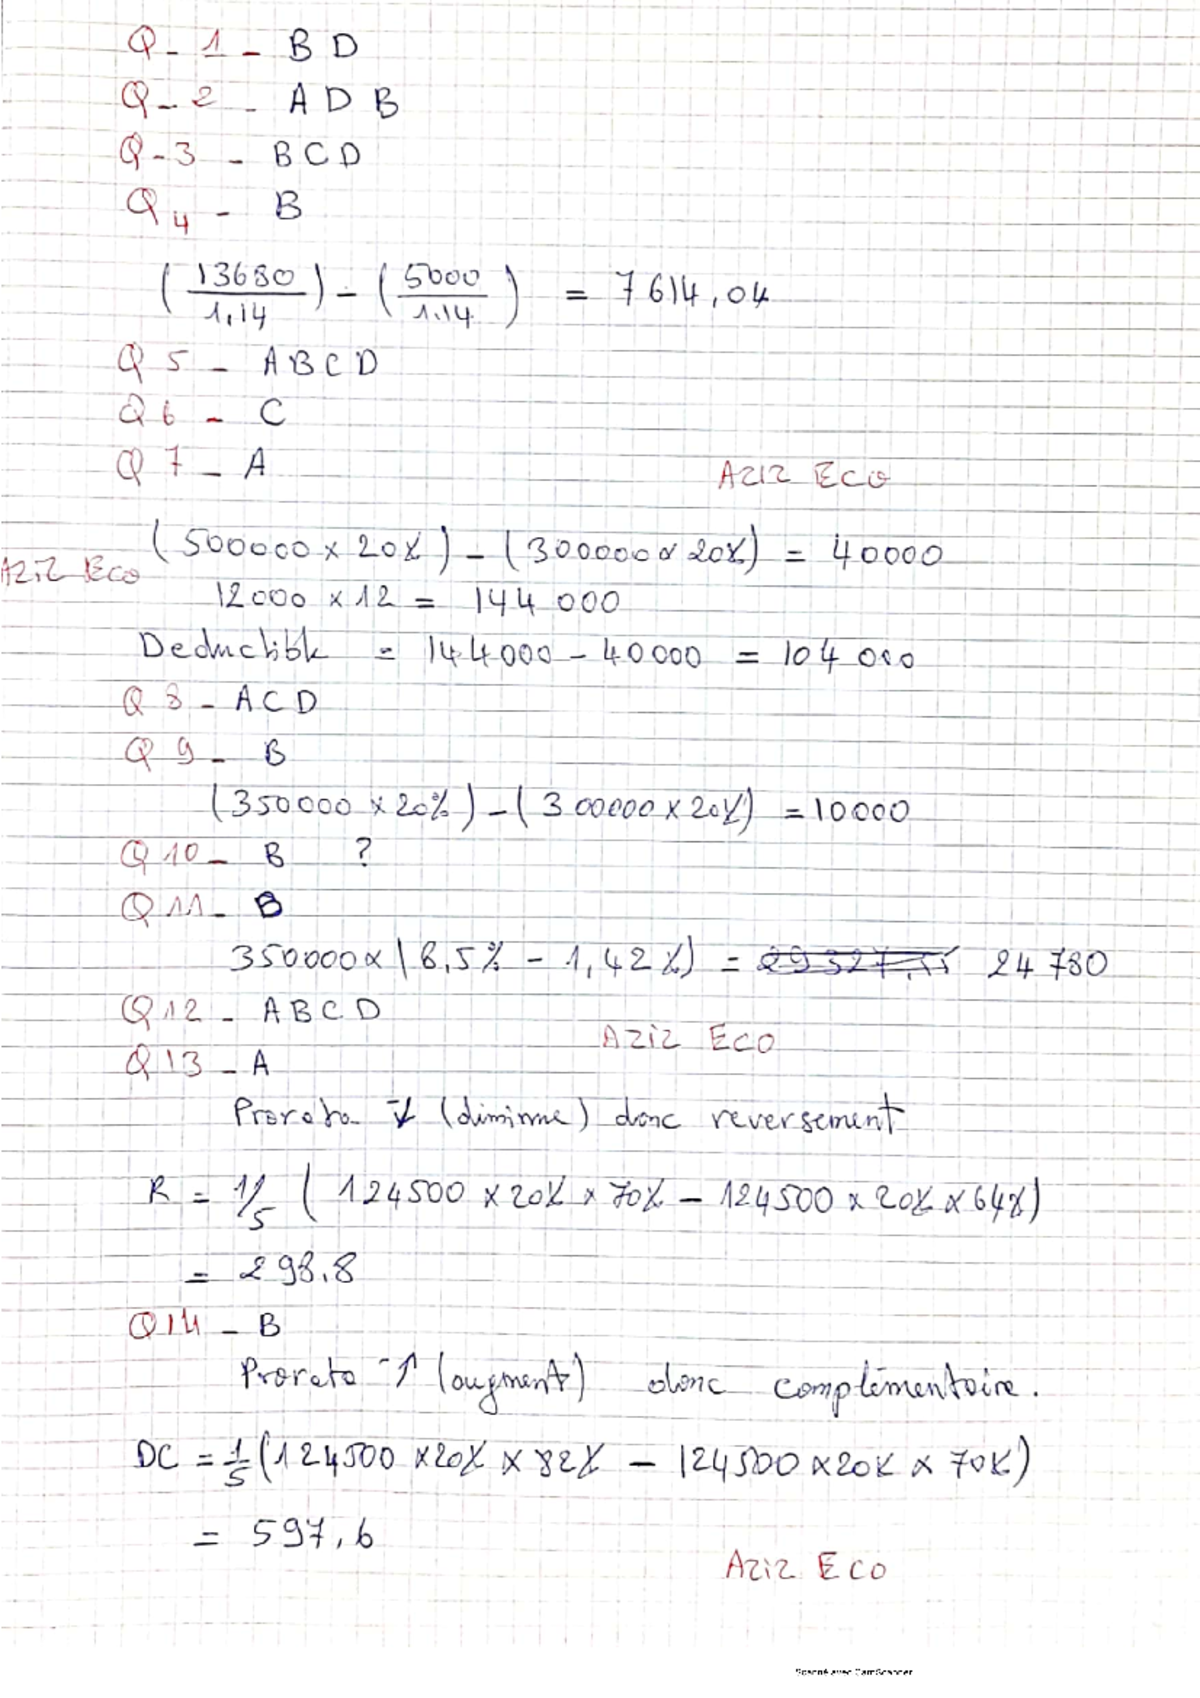 Q - 1 - B D
Q - 2 - A D B
Q - 3 - B C D
Q 4 - B
(13680/1,14) - (5000/1.14) = 7614,04
Q 5 - A B C D
Q 6 - C
Q 7 - A
Aziz Eco
(500000 x 20%) - (300000 x 20%) = 40000
Aziz Eco
12000 x 12 = 144 000
Deductible = 144000 - 40000 = 104 000
Q 8 - A C D
Q 9 - B
(350000 x 20%) - (300000 x 20%) = 10000
Q 10 - B ?
Q 11 - B
350000 x (8,5% - 1,42%) = 24780
Q 12 - A B C D
Aziz Eco
Q 13 - A
Prorata ↓ (diminue) donc reversement
R = 1/5 (124500 x 20% x 70% - 124500 x 20% x 64%)
= 298.8
Q 14 - B
Prorata ↑ (augmente) donc complémentaire.
DC = 1/5 (124500 x 20% x 82% - 124500 x 20% x 70%)
= 597,6
Aziz Eco
Scanné avec CamScanner